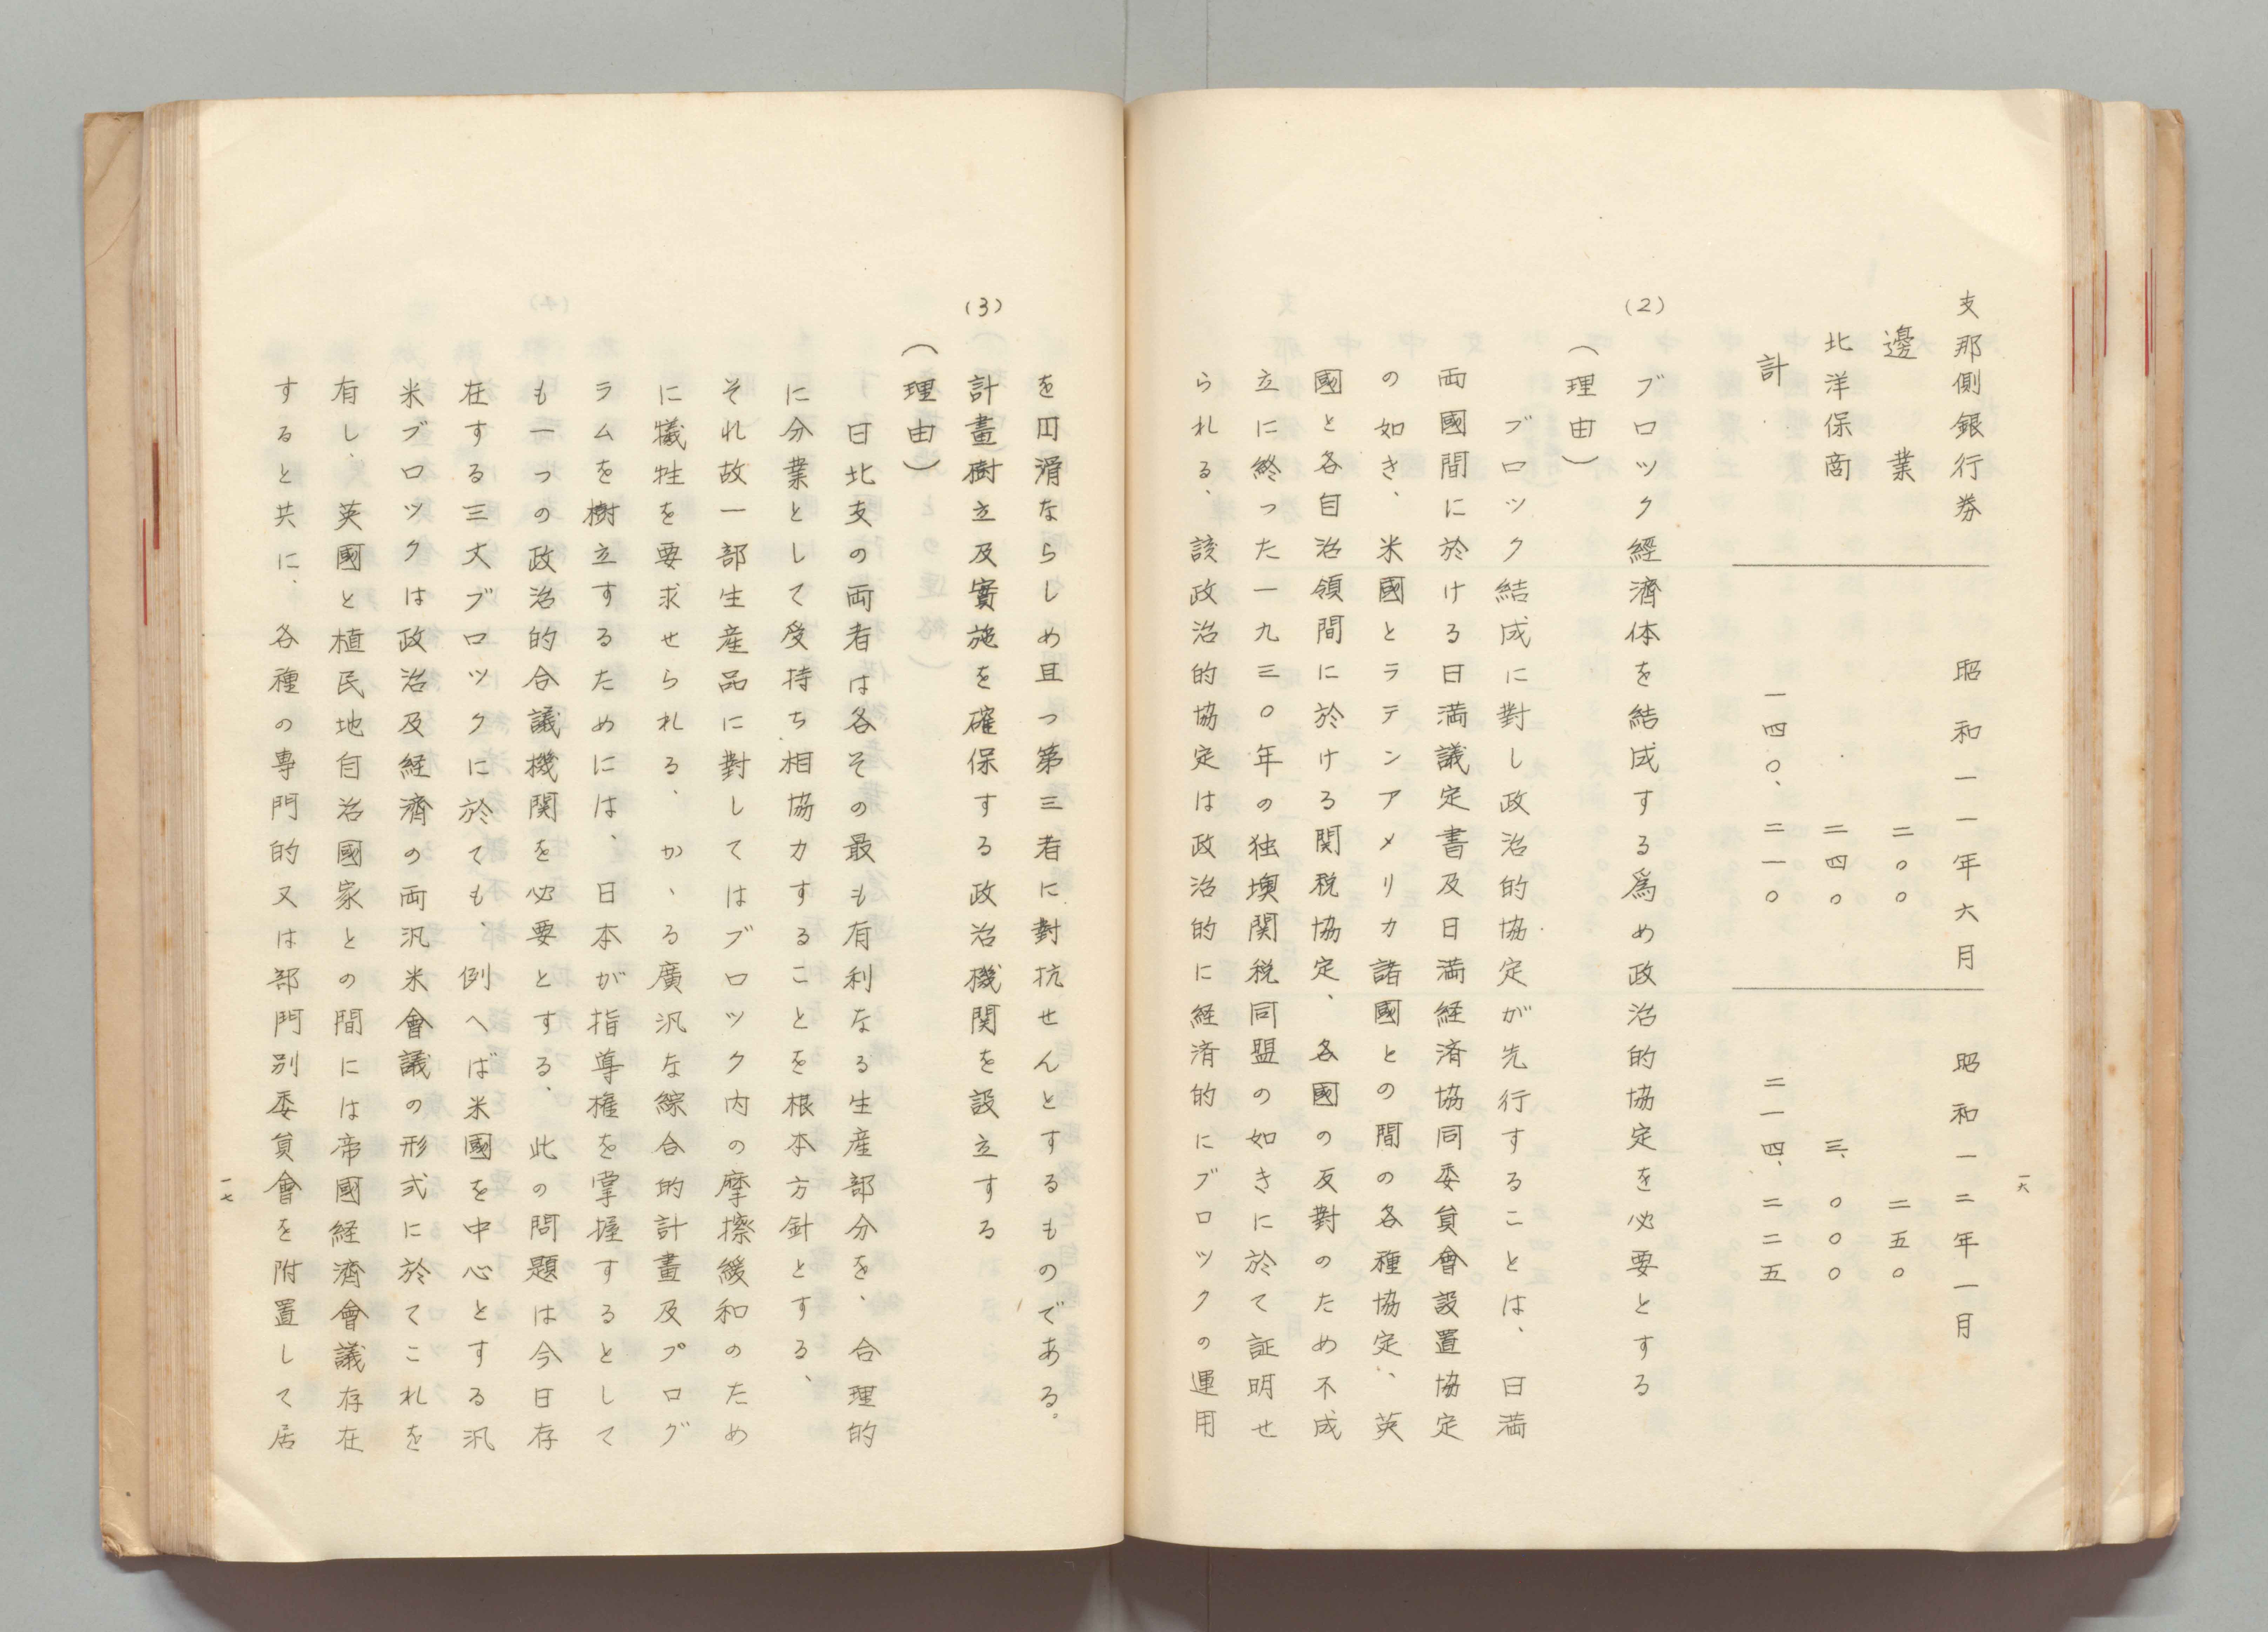 一六
支那側銀行券 昭和一一年六月 昭和一二年一月
邊業 二〇〇 二五〇
北洋保商 二四〇 三、〇〇〇
計 一四〇、二一〇 二一四、二二五
(2) ブロック經濟体を結成する爲め政治的協定を必要とする
(理由)
ブロック結成に對し政治的協定が先行することは、日満
両國間に於ける日満議定書及日満経済協同委員會設置協定
の如き、米國とラテンアメリカ諸國との間の各種協定、英
國と各自治領間に於ける関税協定、各國の反對のため不成
立に終った一九三〇年の独墺関税同盟の如きに於て証明せ
られる、該政治的協定は政治的に経済的にブロックの運用
を円滑ならしめ且つ第三者に對抗せんとするものである。
(3) 計畫樹立及實施を確保する政治機関を設立する
(理由)
日北支の両者は各その最も有利なる生産部分を、合理的
に分業として受持ち相協力することを根本方針とする、
それ故一部生産品に對してはブロック内の摩擦緩和のため
に犠牲を要求せられる、かゝる廣汎な綜合的計畫及プログ
ラムを樹立するためには、日本が指導権を掌握するとして
も一つの政治的合議機関を必要とする、此の問題は今日存
在する三大ブロックに於ても、例へば米國を中心とする汎
米ブロックは政治及経濟の両汎米會議の形式に於てこれを
有し、英國と植民地自治國家との間には帝國経濟會議存在
すると共に、各種の專門的又は部門別委員會を附置して居
一七